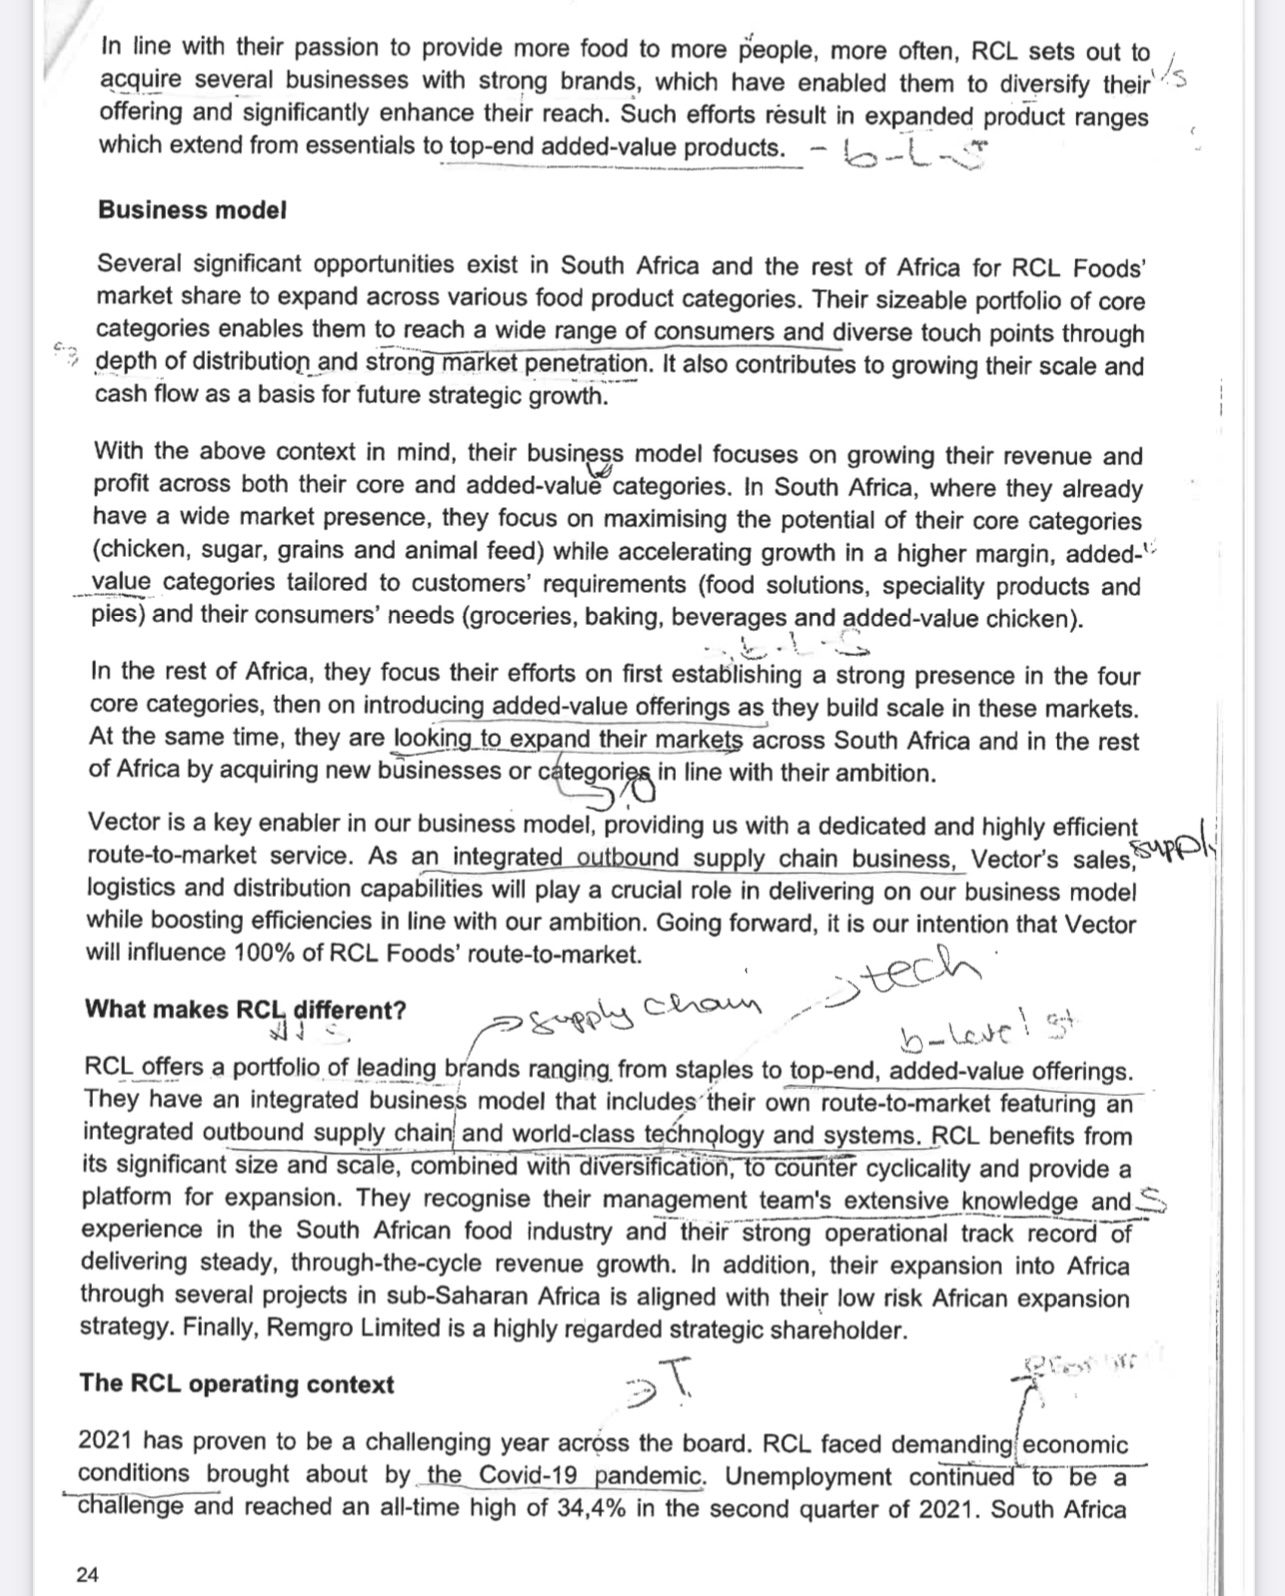 In line with their passion to provide more food to more people, more often, RCL sets out to
acquire several businesses with strong brands, which have enabled them to diversify their
offering and significantly enhance their reach. Such efforts result in expanded product ranges
which extend from essentials to top-end added-value products. - b-L-S
Business model
Several significant opportunities exist in South Africa and the rest of Africa for RCL Foods'
market share to expand across various food product categories. Their sizeable portfolio of core
categories enables them to reach a wide range of consumers and diverse touch points through
depth of distribution and strong market penetration. It also contributes to growing their scale and
cash flow as a basis for future strategic growth.
With the above context in mind, their business model focuses on growing their revenue and
profit across both their core and added-value categories. In South Africa, where they already
have a wide market presence, they focus on maximising the potential of their core categories
(chicken, sugar, grains and animal feed) while accelerating growth in a higher margin, added-
value categories tailored to customers' requirements (food solutions, speciality products and
pies) and their consumers' needs (groceries, baking, beverages and added-value chicken).
b-L-S
In the rest of Africa, they focus their efforts on first establishing a strong presence in the four
core categories, then on introducing added-value offerings as they build scale in these markets.
At the same time, they are looking to expand their markets across South Africa and in the rest
of Africa by acquiring new businesses or categories in line with their ambition.
Vector is a key enabler in our business model, providing us with a dedicated and highly efficient
route-to-market service. As an integrated outbound supply chain business, Vector's sales, supply
logistics and distribution capabilities will play a crucial role in delivering on our business model
while boosting efficiencies in line with our ambition. Going forward, it is our intention that Vector
will influence 100% of RCL Foods' route-to-market.
tech
What makes RCL different? supply chain
b-level st
RCL offers a portfolio of leading brands ranging from staples to top-end, added-value offerings.
They have an integrated business model that includes their own route-to-market featuring an
integrated outbound supply chain and world-class technology and systems. RCL benefits from
its significant size and scale, combined with diversification, to counter cyclicality and provide a
platform for expansion. They recognise their management team's extensive knowledge and S
experience in the South African food industry and their strong operational track record of
delivering steady, through-the-cycle revenue growth. In addition, their expansion into Africa
through several projects in sub-Saharan Africa is aligned with their low risk African expansion
strategy. Finally, Remgro Limited is a highly regarded strategic shareholder.
The RCL operating context T
2021 has proven to be a challenging year across the board. RCL faced demanding economic
conditions brought about by the Covid-19 pandemic. Unemployment continued to be a
challenge and reached an all-time high of 34,4% in the second quarter of 2021. South Africa
24